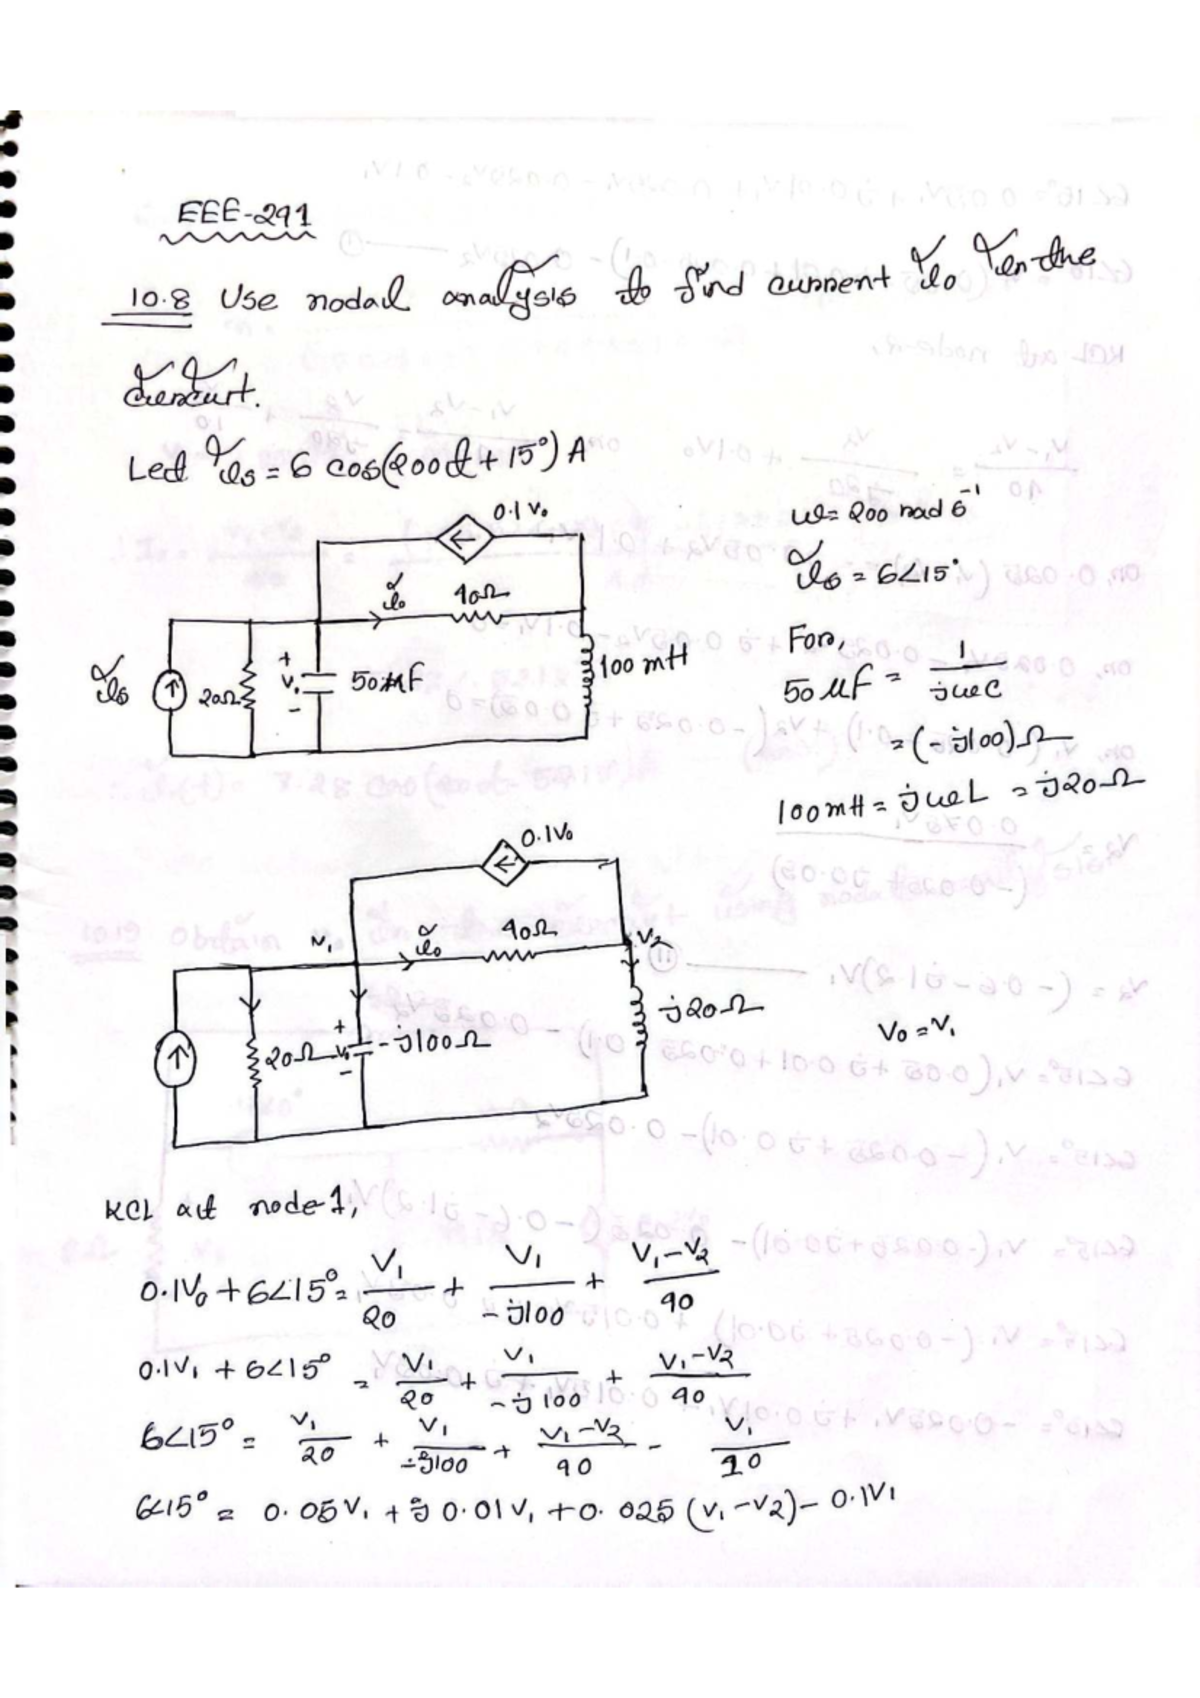 EEE-291
10.8 Use nodal analysis to find current io in the
circuit.
Let is = 6 cos(200t + 15°) A
0.1 Vo
ω = 200 rad s⁻¹
is = 6∠15°
io 40Ω
is 20Ω + Vo - 50μF 100 mH
For,
50 μF = 1/jωC
= (-j100)Ω
100mH = jωL = j20Ω
0.1Vo
V1 io 40Ω V2
20Ω + Vo - -j100Ω j20Ω
Vo = V1
KCL at node-1,
0.1Vo + 6∠15° = V1/20 + V1/-j100 + (V1-V2)/40
0.1V1 + 6∠15° = V1/20 + V1/-j100 + (V1-V2)/40
6∠15° = V1/20 + V1/-j100 + (V1-V2)/40 - V1/10
6∠15° = 0.05V1 + j0.01V1 + 0.025(V1-V2) - 0.1V1